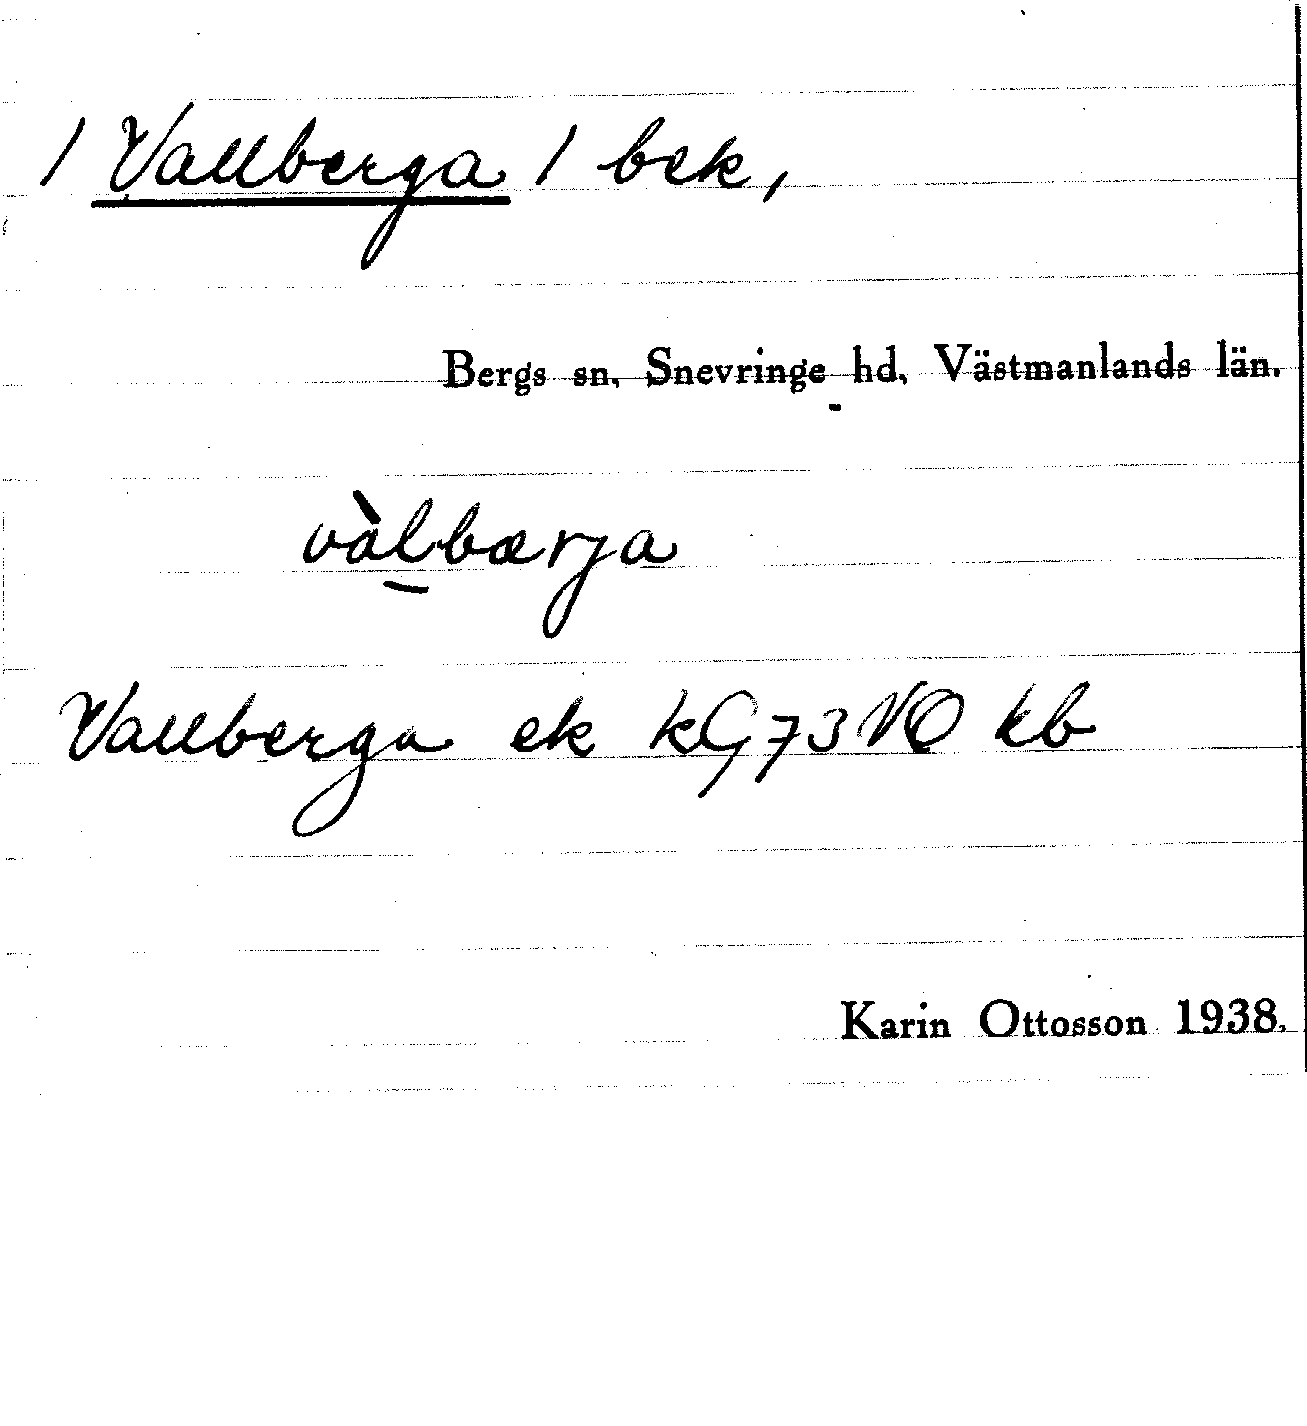 / Vallberga / bek,
Bergs sn, Snevringe hd, Västmanlands län.
vàl̲bærja
Vallberga ek kG73NO kb
Karin Ottosson 1938.